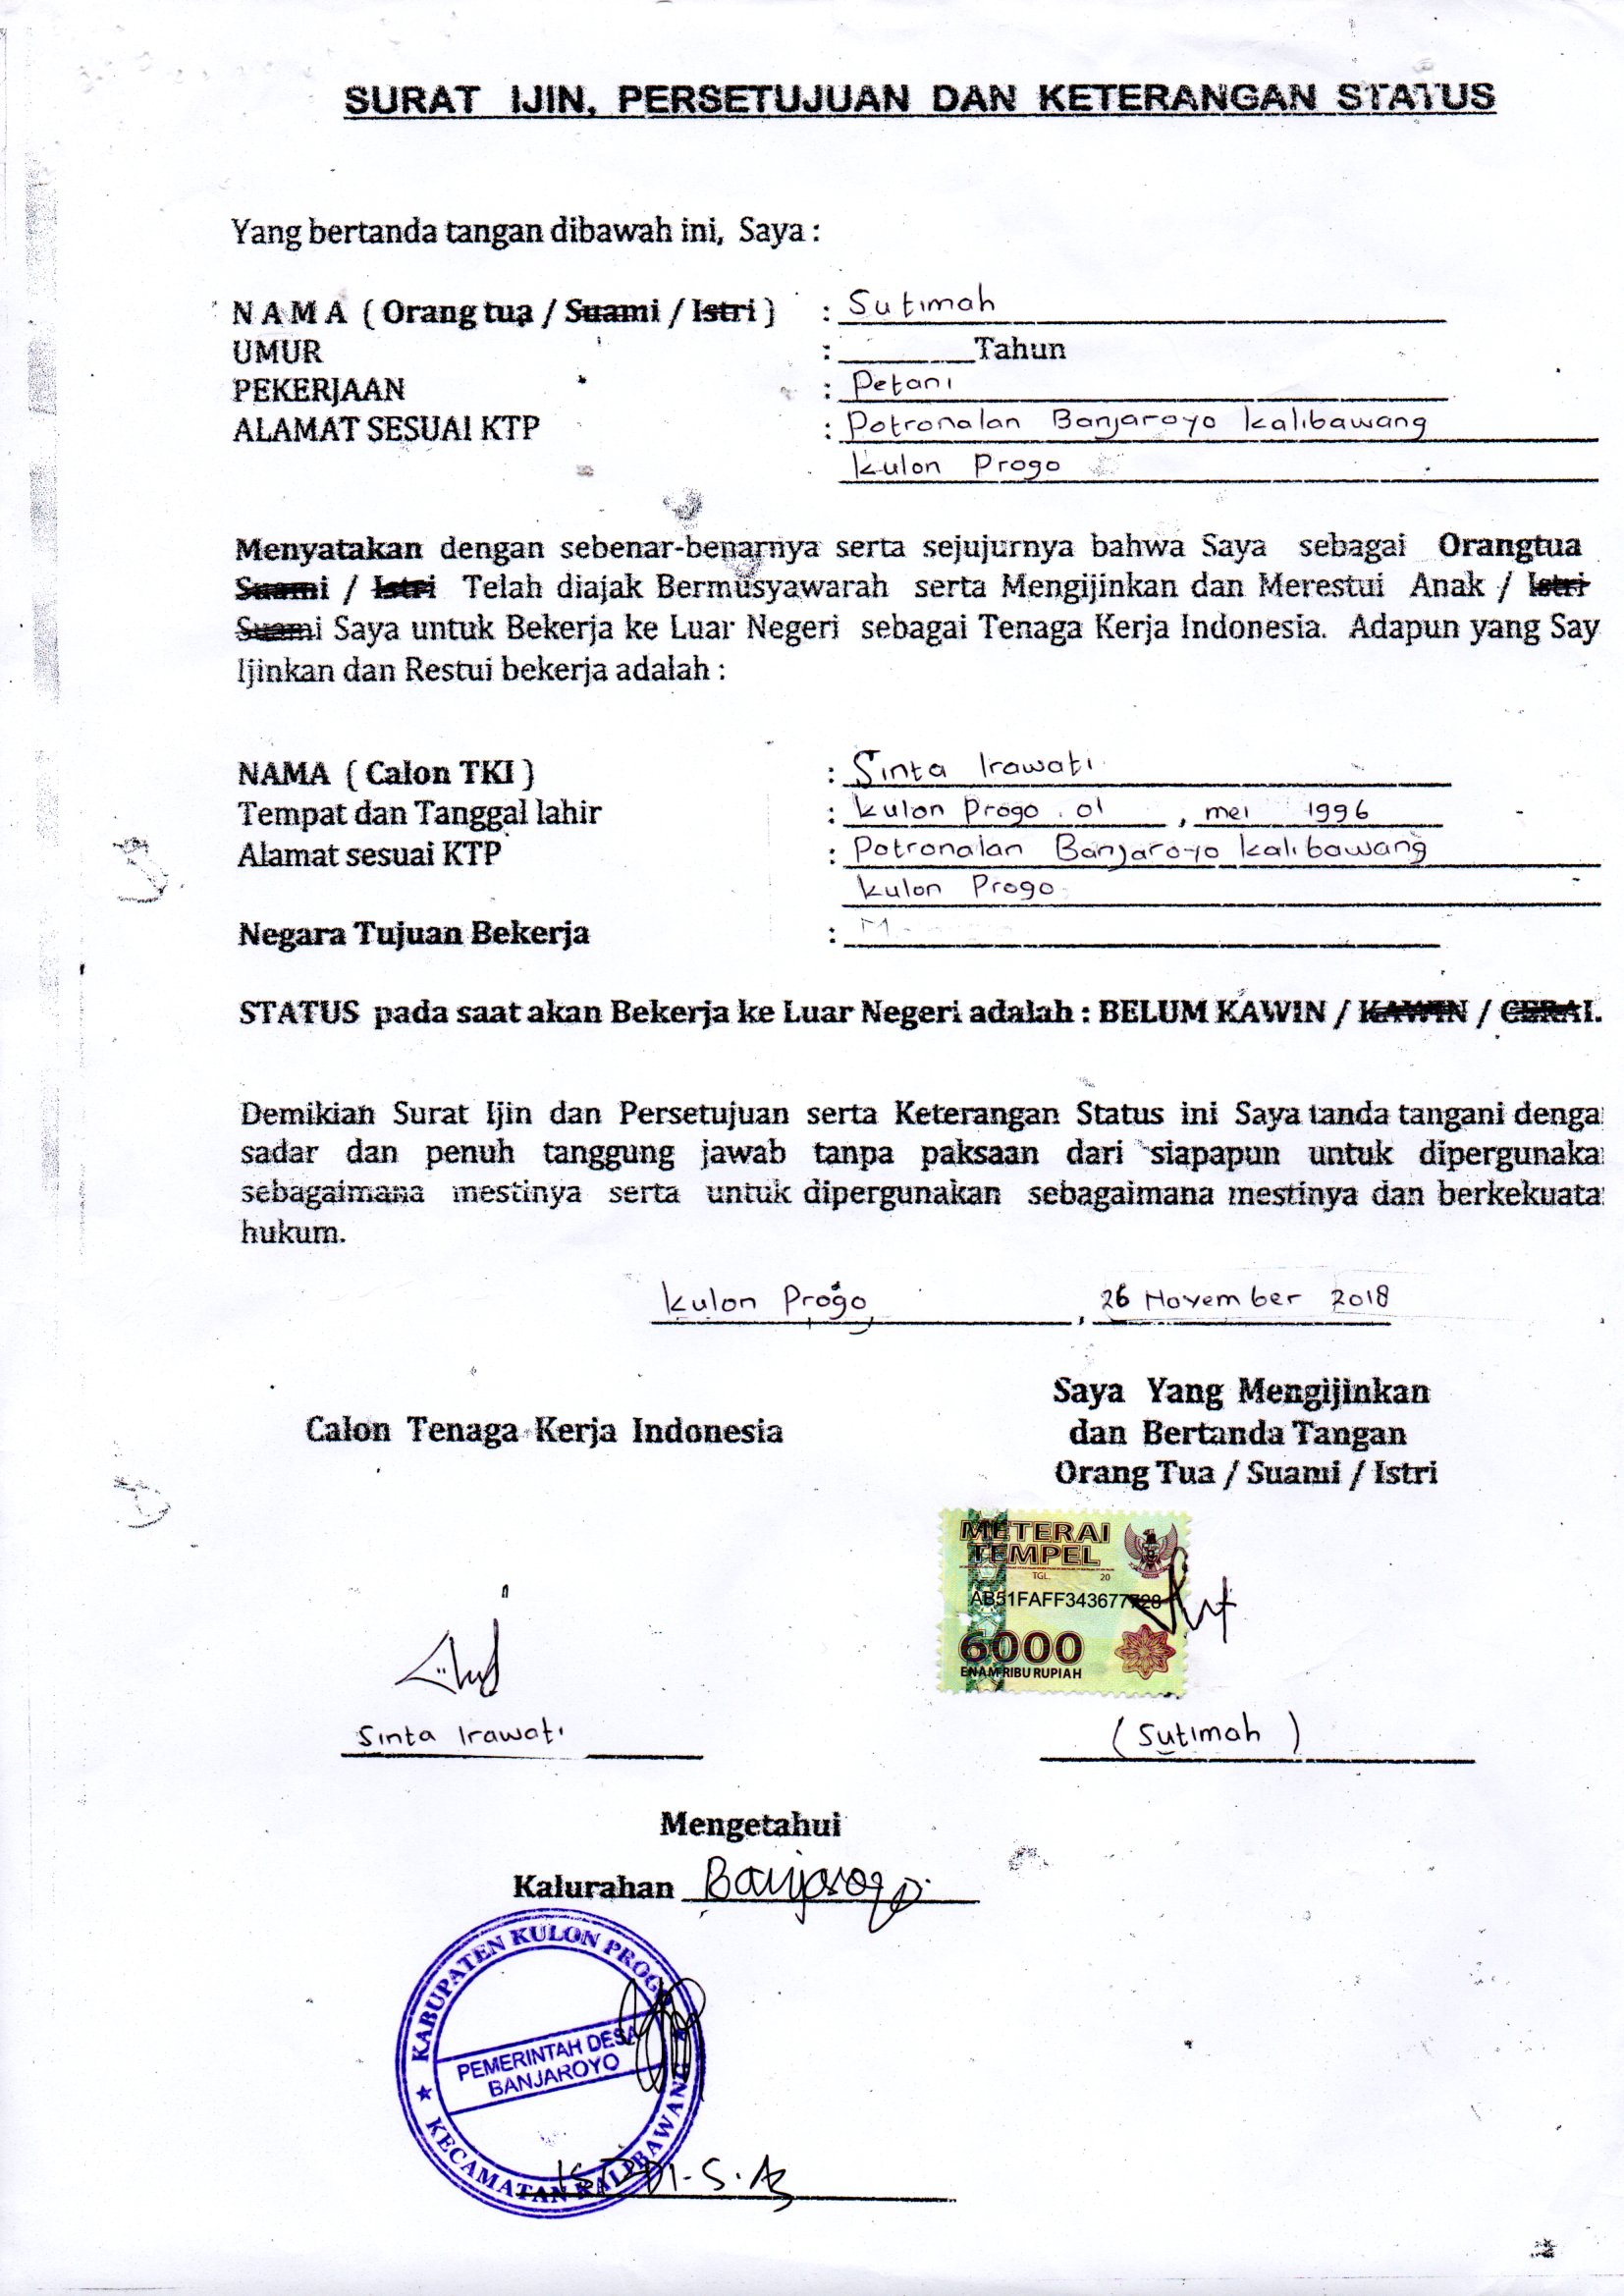 SURAT IJIN, PERSETUJUAN DAN KETERANGAN STATUS
Yang bertanda tangan dibawah ini, Saya :
N A M A ( Orang tua / Suami / Istri ) : Sutimah
UMUR : ________Tahun
PEKERJAAN : Petani
ALAMAT SESUAI KTP : Potronalan Banjaroyo Kalibawang
Kulon Progo
Menyatakan dengan sebenar-benarnya serta sejujurnya bahwa Saya sebagai Orangtua
Suami / Istri Telah diajak Bermusyawarah serta Mengijinkan dan Merestui Anak / Istri
Suami Saya untuk Bekerja ke Luar Negeri sebagai Tenaga Kerja Indonesia. Adapun yang Say
Ijinkan dan Restui bekerja adalah :
NAMA ( Calon TKI ) : Sinta Irawati
Tempat dan Tanggal lahir : Kulon Progo . 01 , mei 1996
Alamat sesuai KTP : Potronalan Banjaroyo Kalibawang
Kulon Progo
Negara Tujuan Bekerja :
STATUS pada saat akan Bekerja ke Luar Negeri adalah : BELUM KAWIN / KAWIN / CERAI.
Demikian Surat Ijin dan Persetujuan serta Keterangan Status ini Saya tanda tangani denga
sadar dan penuh tanggung jawab tanpa paksaan dari siapapun untuk dipergunaka
sebagaimana mestinya serta untuk dipergunakan sebagaimana mestinya dan berkekuata
hukum.
Kulon Progo , 26 November 2018
Saya Yang Mengijinkan
Calon Tenaga Kerja Indonesia dan Bertanda Tangan
Orang Tua / Suami / Istri
METERAI
TEMPEL
TGL. 20
AB51FAFF343677728
6000
ENAM RIBU RUPIAH
Sinta Irawati ( Sutimah )
Mengetahui
Kalurahan Banjaroyo
KABUPATEN KULON PROGO
PEMERINTAH DESA
BANJAROYO
KECAMATAN KALIBAWANG